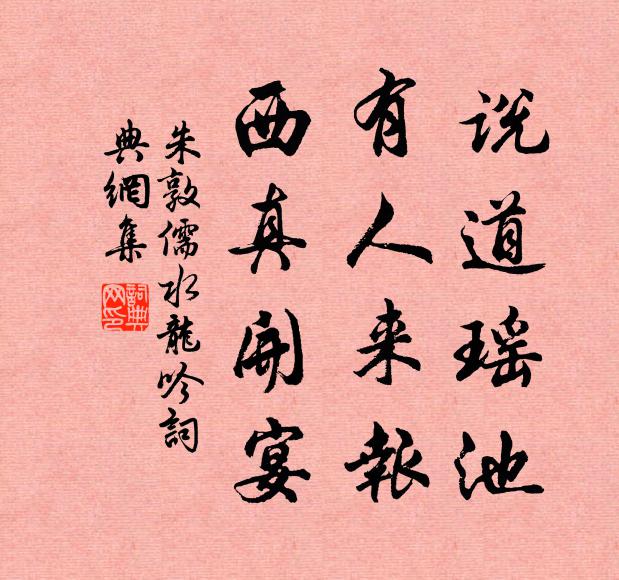 说道瑶池
有人来報
西真開宴
朱敦儒水龍吟詞
典網集
詞典網印